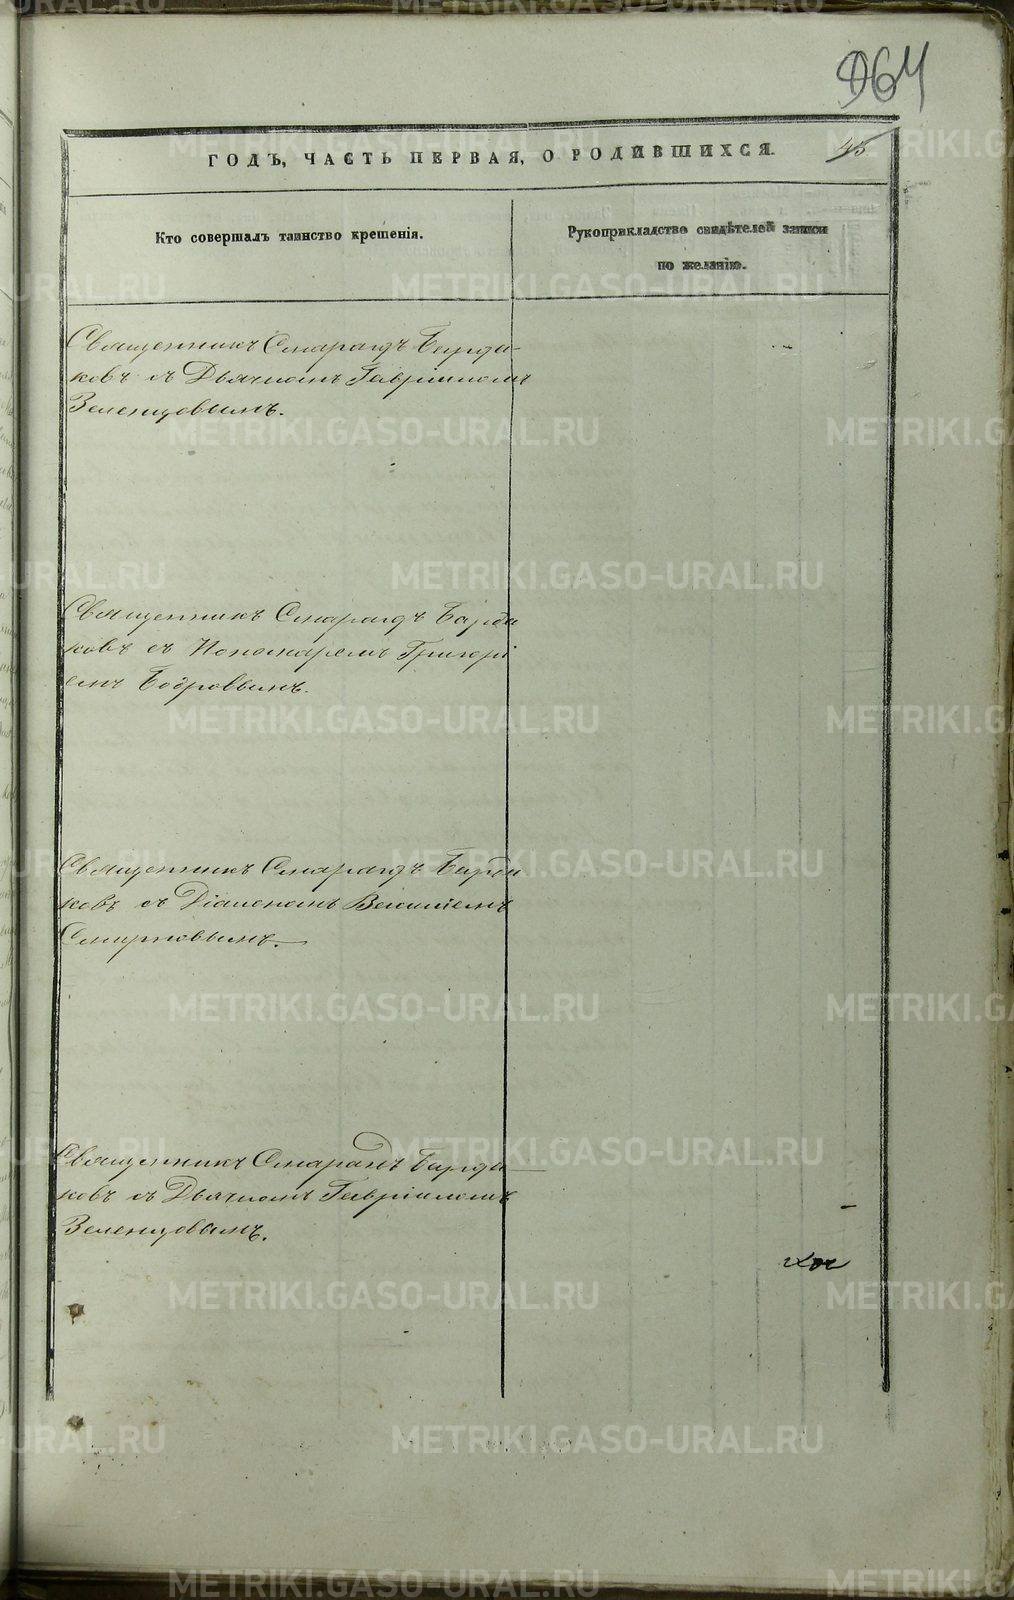 964
ГОДЪ, ЧАСТЬ ПЕРВАЯ, О РОДИВШИХСЯ.
45
Кто совершалъ таинство крещенія.
Рукоприкладство свидѣтелей записи
по желанію.
Священникъ Смарагдъ Барда-
ковъ съ Дьячкомъ Гавріиломъ
Зеленцовымъ.
Священникъ Смарагдъ Барда
ковъ съ Пономаремъ Григорі
емъ Бобровымъ.
Священникъ Смарагдъ Барда
ковъ съ Діакономъ Василіемъ
Смирновымъ.
Священникъ Смарагдъ Барда
ковъ съ Дьячкомъ Гавріиломъ
Зеленцовымъ.
METRIKI.GASO-URAL.RU